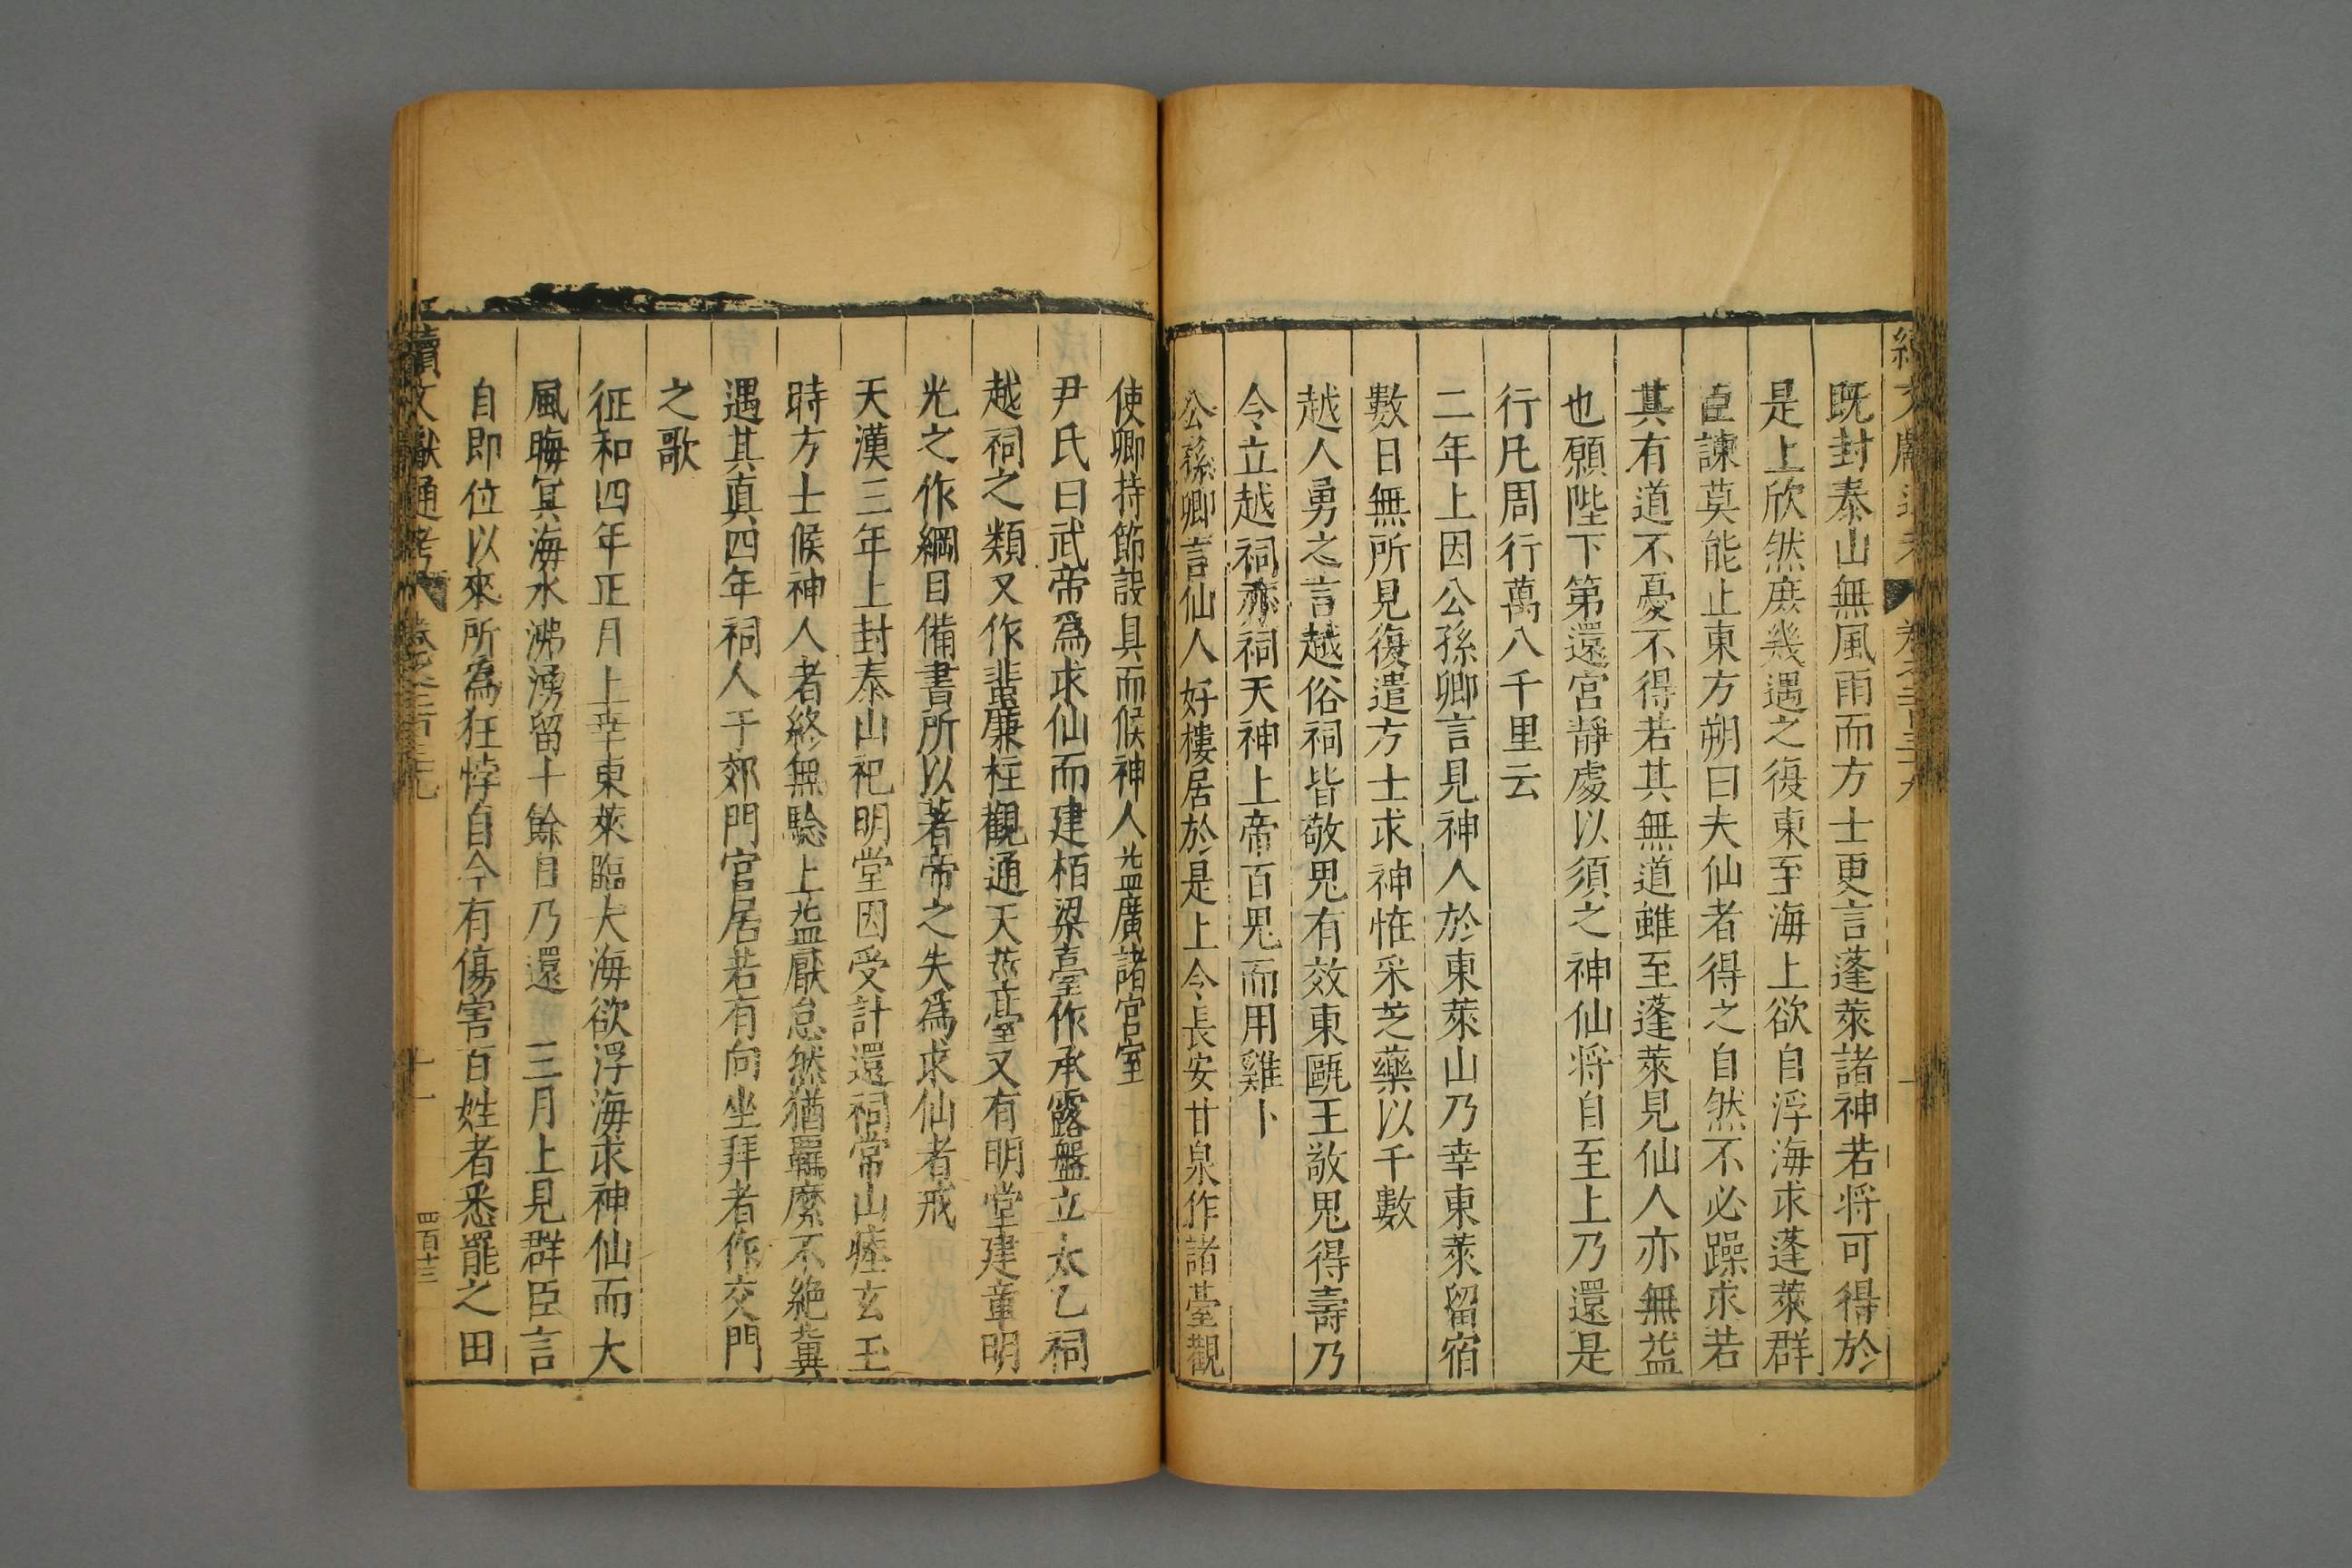 既封泰山無風雨而方士更言蓬萊諸神若將可得於
是上欣然庶幾遇之復東至海上欲自浮海求蓬萊群
臣諫莫能止東方朔曰夫仙者得之自然不必躁求若
其有道不憂不得若其無道雖至蓬萊見仙人亦無益
也願陛下第還宮靜處以須之神仙将自至上乃還是
行凡周行萬八千里云
二年上因公孫卿言見神人於東萊山乃幸東萊留宿
數日無所見復遣方士求神恠采芝藥以千數
越人勇之言越俗祠皆敬鬼有效東甌王敬鬼得壽乃
令立越祠亦祠天神上帝百鬼而用雞卜
公孫卿言仙人好樓居於是上令長安甘泉作諸臺觀
使卿持節設具而候神人益廣諸宮室
尹氏曰武帝為求仙而建栢梁臺作承露盤立太乙祠
越祠之類又作蜚廉桂觀通天莖臺又有明堂建章明
光之作綱目備書所以著帝之失為求仙者戒
天漢三年上封泰山祀明堂因受計還祠常山瘞玄玉
時方士候神人者終無驗上益厭怠然猶羈縻不絶冀
遇其真四年祠人于郊門宮居若有向坐拜者作交門
之歌
征和四年正月上幸東萊臨大海欲浮海求神仙而大
風晦冥海水沸湧留十餘日乃還 三月上見群臣言
自即位以來所為狂悖自今有傷害百姓者悉罷之田
續文獻通考 卷之二百三十九 十一 四百十三